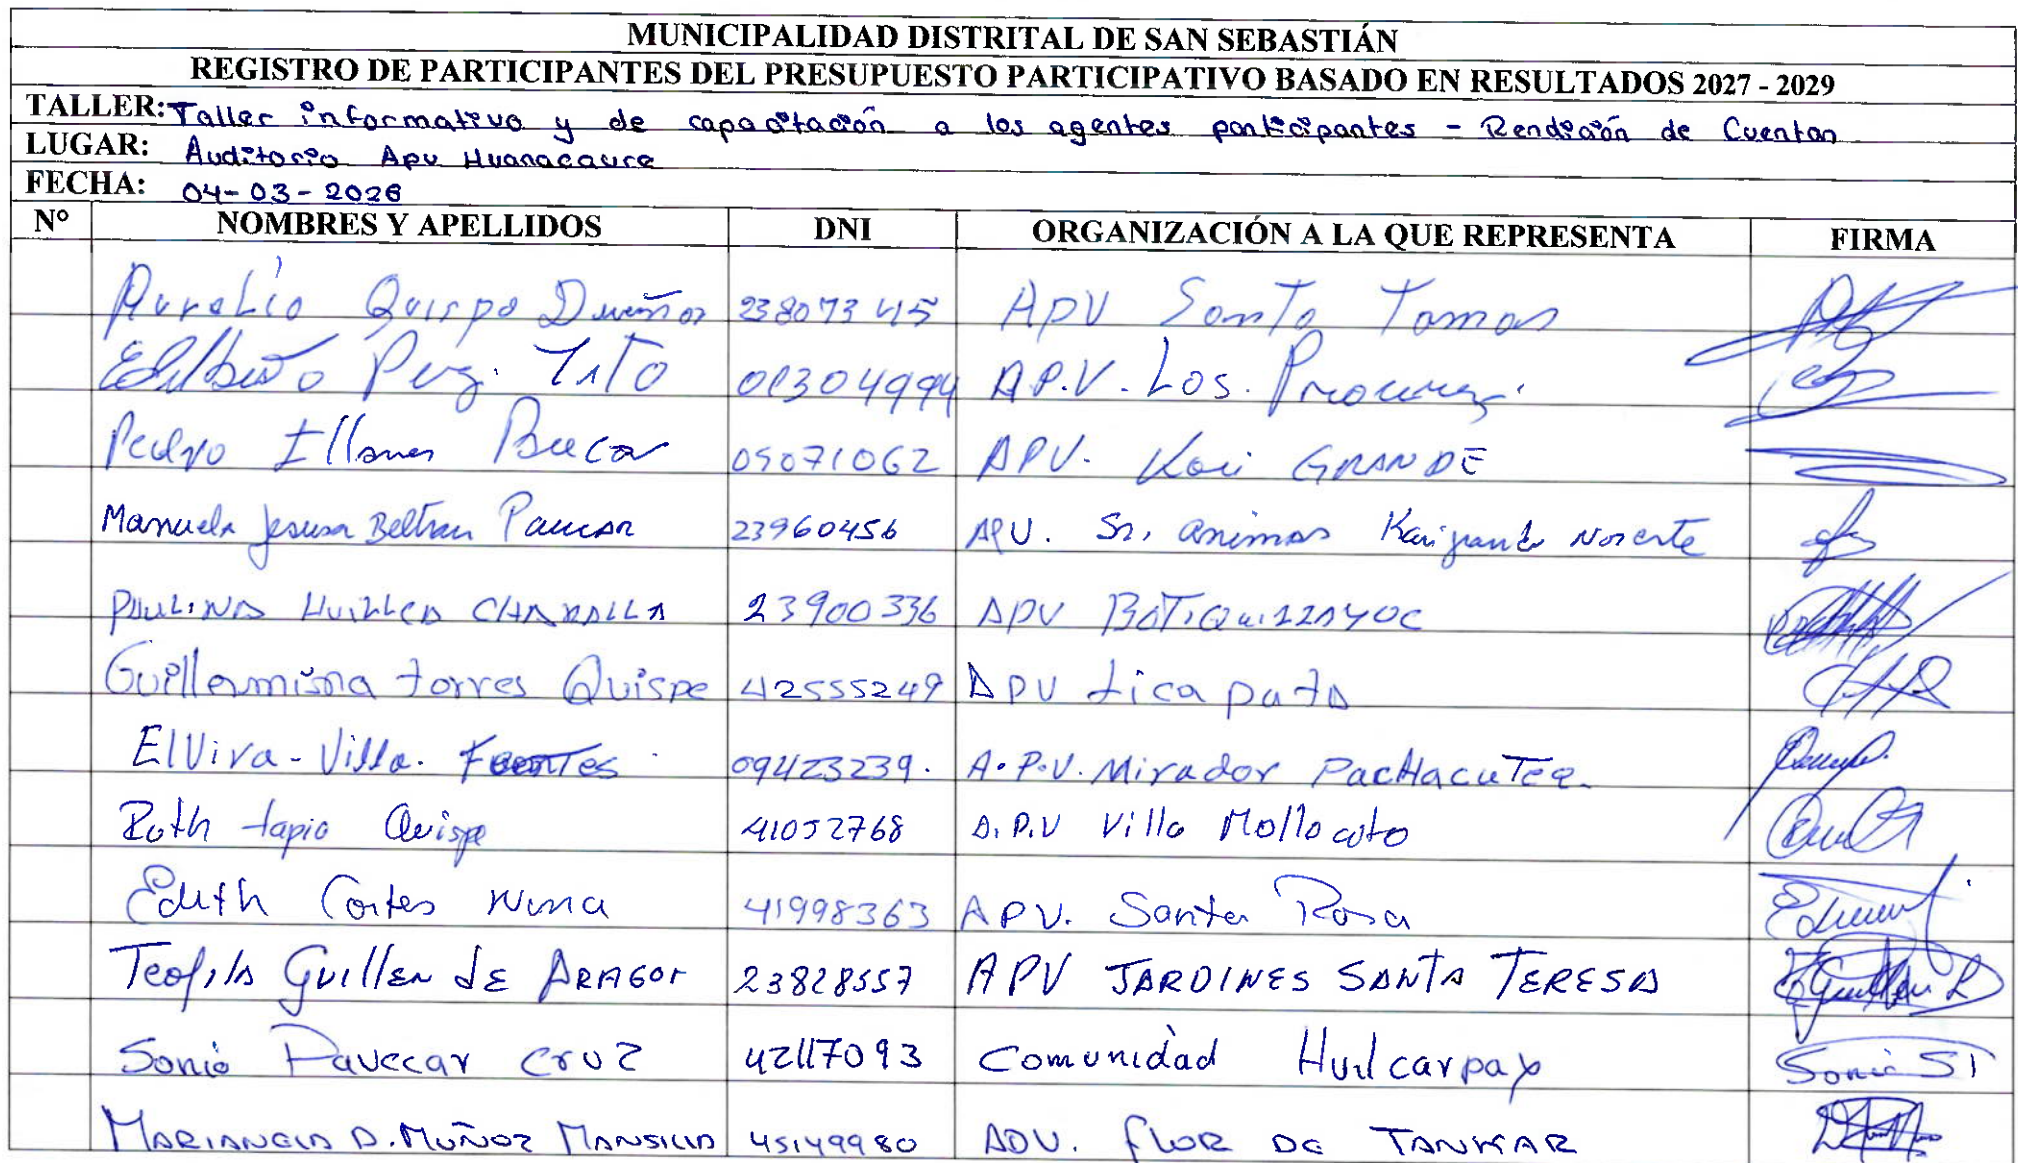 MUNICIPALIDAD DISTRITAL DE SAN SEBASTIÁN
REGISTRO DE PARTICIPANTES DEL PRESUPUESTO PARTICIPATIVO BASADO EN RESULTADOS 2027 - 2029
TALLER: Taller informativo y de capacitación a los agentes participantes - Rendición de Cuentas
LUGAR: Auditorio Apu Huanacaure
FECHA: 04-03-2026
N° NOMBRES Y APELLIDOS DNI ORGANIZACIÓN A LA QUE REPRESENTA FIRMA
Aurelio Quispe Dueñas 23807345 APV Santo Tomas
Edilberto 01304994 AP.V. Los.
Pedro Illanes 05071062 APV. Kari GRANDE
Manuela Jesusa Beltran Paucar 23960456 APV. Sr. animas Norte
PAULINA HUILLCA 23900336 APV
Guillermina torres Quispe 42555249 APV tica pata
ElViva - Villa. Fuentes 09423239. A.P.V. Mirador PacHacuTeq.
Ruth tapia Quispe 41052768 A.P.V Villa Mollo
Edith Cortes Nina 41998363 APV. Santa Rosa
Teofila Guillen de ARAGON 23828557 APV JARDINES SANTA TERESA
Sonia Pauccar Cruz 42117093 Comunidad Huilcarpay
MARIANELA D. MUÑOZ MANSILLA 45149980 APV. FLOR DE TANKAR